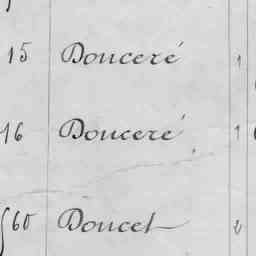 15 Douceré 1
16 Douceré 1
560 Doucet 2